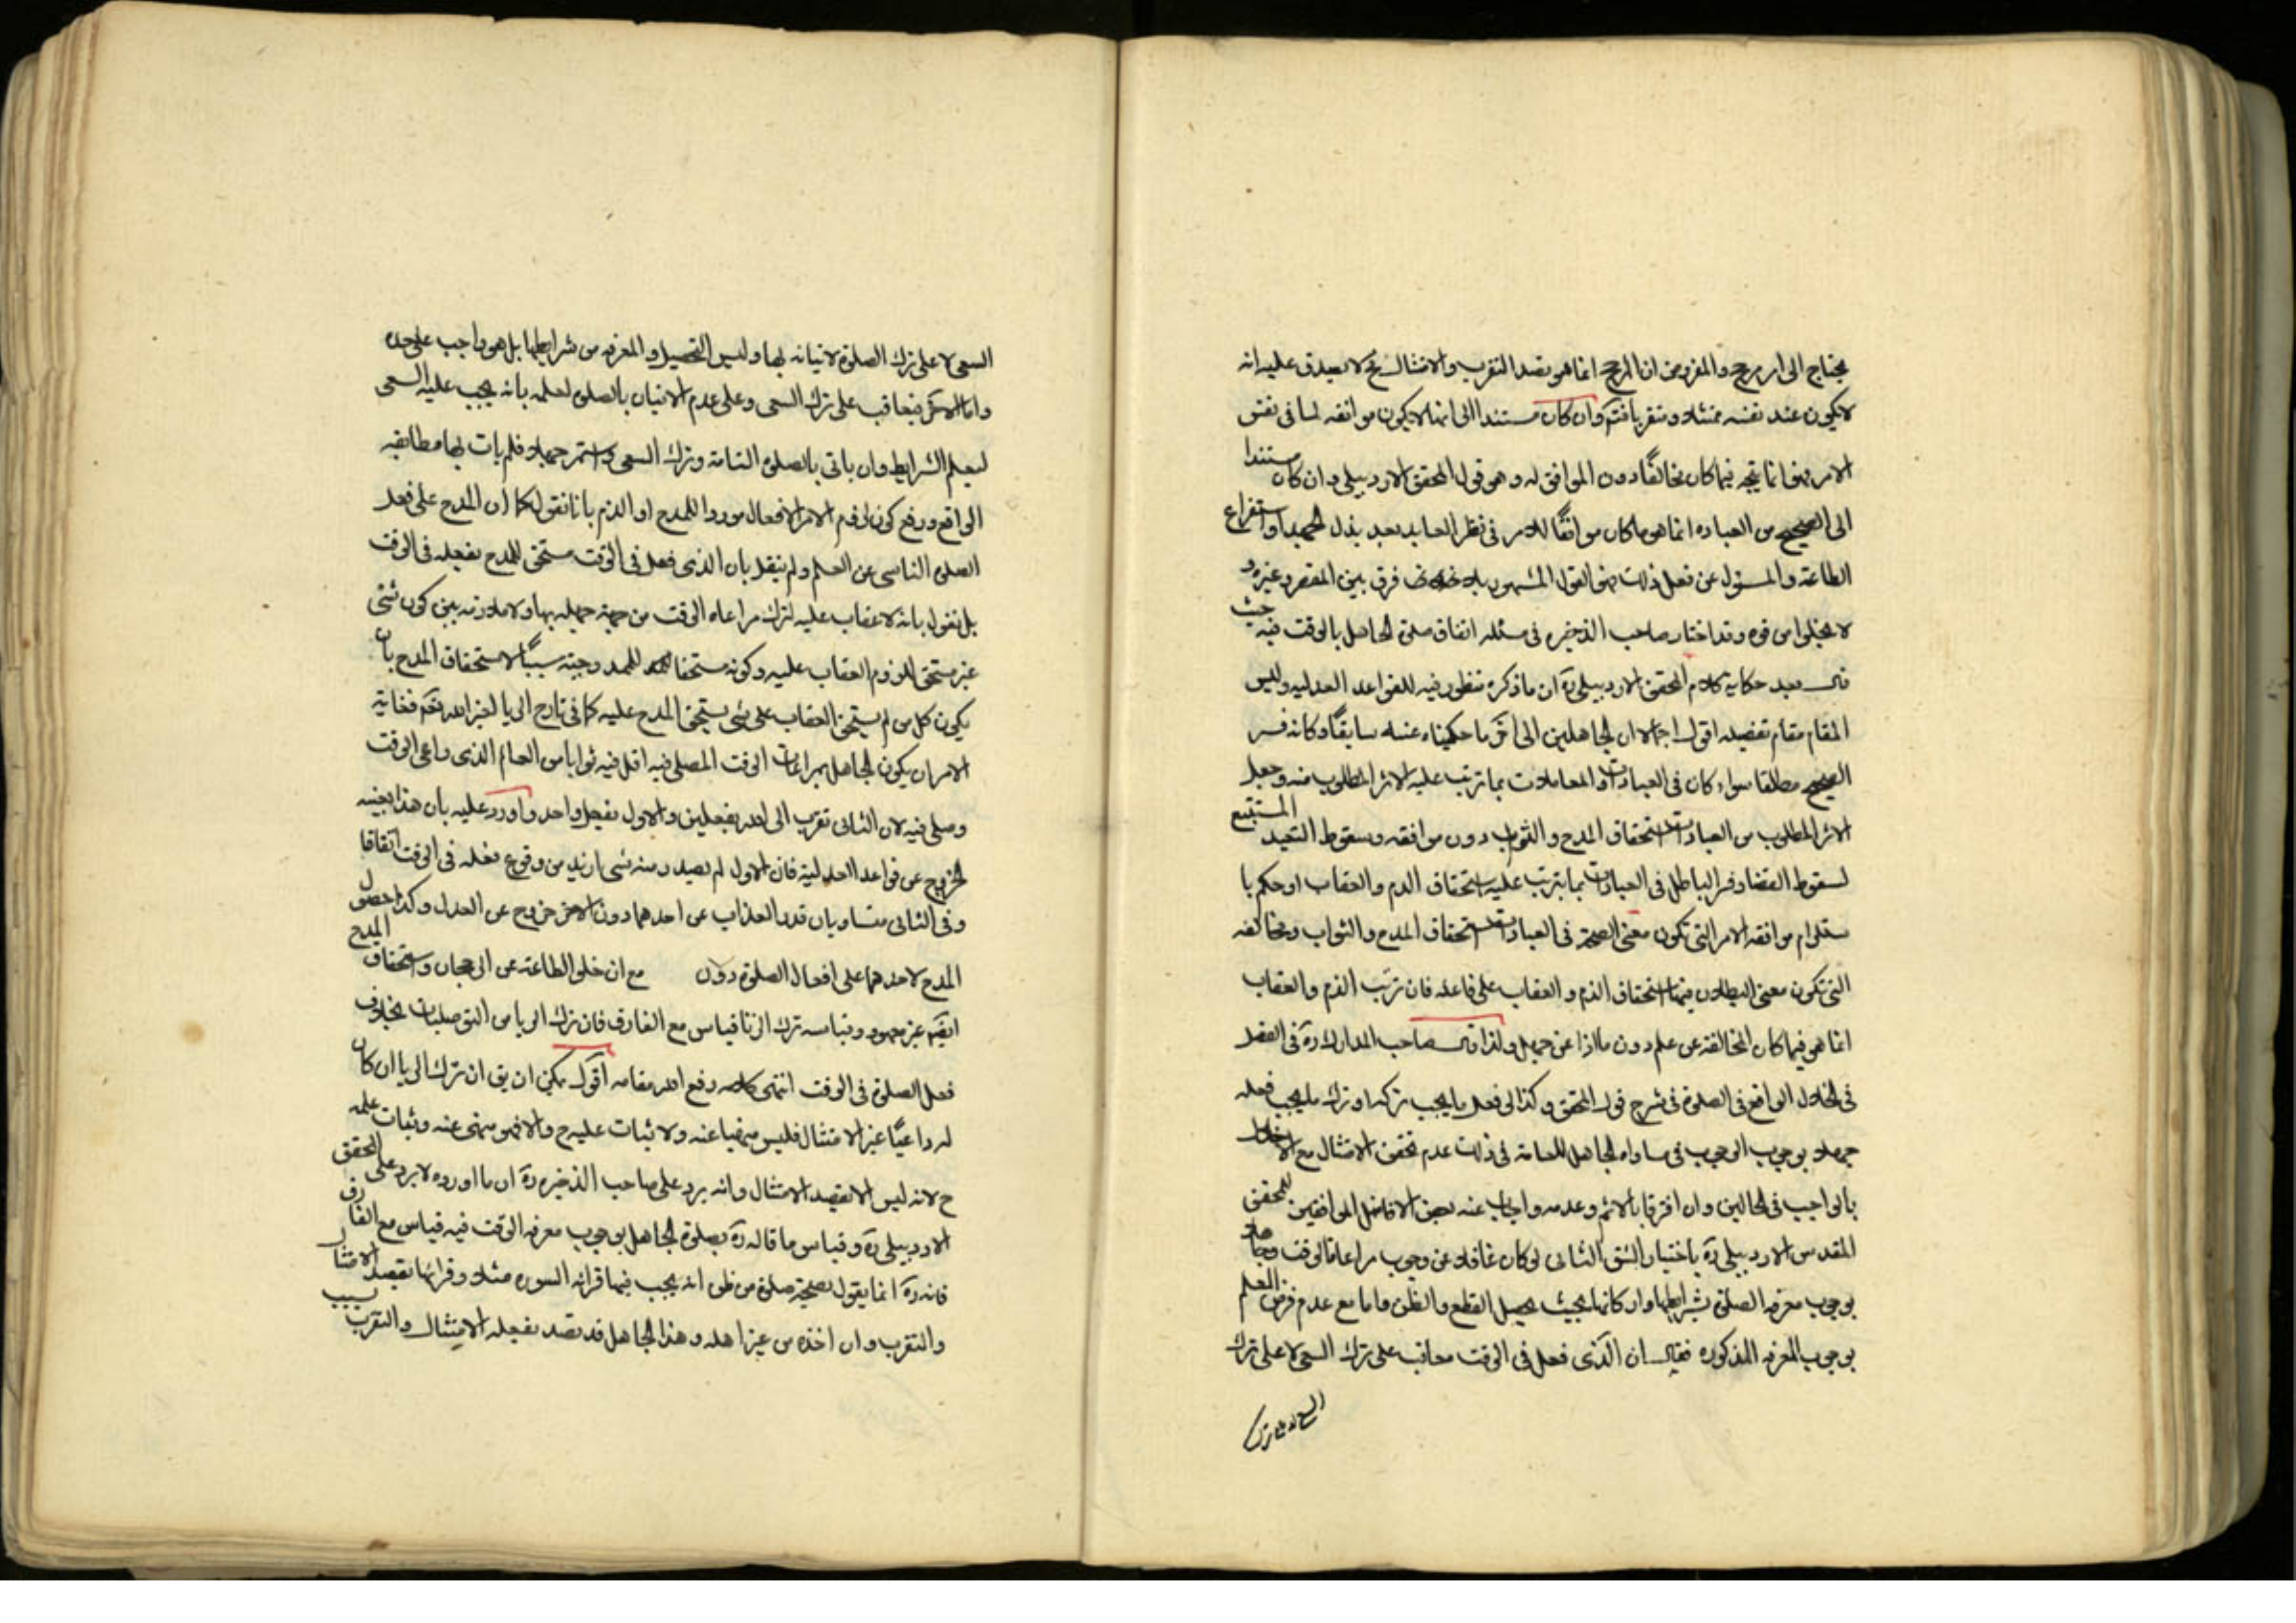 يحتاج الى امر مرجح والمفروض ان المرجح انما هو قصد التقرب والامتثال مع لا يصدق عليه انه
لا يكون عند نفسه ممتثلا ومتقربا فتم وان كان مستندا الى انها لا يكون موافقه لما في نفس
الامر فهو انما يتجه فيما كان مخالفا دون الموافق له وهو قول المحقق الاردبيلي وان كان مستندا
الى الصحيح من العباده انما هو ما كان موافقا للامر في نظر العابد بعد بذل الجهد او استفراغ
الطاعة والمسئول عن فعل ذلك فهو القول المشهور بلا فرق بين المقصر وغيره و
لا يخلوا من قوه وقد اختار صاحب الذخيره في مسئله اتفاق صلوة الجاهل بالوقت فيه حيث
قال بعد حكاية كلام المحقق الاردبيلي ره ان ما ذكره منظور فيه للقواعد العدليه وليس
المقام مقام تفصيله اقول اجمالا ان الجاهلين الى اخر ما حكيناه عنه سابقا وكانه فسر
الصحيح مطلقا سواء كان في العبادات او المعاملات بما ترتب عليه الاثر المطلوب منه وجعل
الاثر المطلوب من العبادات استحقاق المدح والثواب دون موافقه وسقوط التعبد المستتبع
لسقوط القضا وفسر الباطل في العبادات بما يترتب عليه استحقاق الذم والعقاب او حكم با
ستلزام موافقه الامر التي تكون معنى الصحة في العبادات استحقاق المدح والثواب ومخالفه
التي تكون معنى البطلان فيها استحقاق الذم والعقاب على فاعله فان ترتب الذم والعقاب
انما هي فيما كان المخالفه عن علم دون ما اذا عن جهل ولذا قال صاحب المدارك ره في الفصل
في الخلل الواقع في الصلوة في شرح قول المحقق وكذا لو فعل ما يجب تركه او ترك ما يجب فعله
جهلا بوجوبه الوجوب في مساواه الجاهل للعامد في ذلك عدم تحقق الامتثال مع الاخلال
بالواجب في الحالين وان افترقا بالاثم وعدمه واجاب عنه بعض الافاضل الموافقين للمحقق
المقدس الاردبيلي ره باختيار الشق الثاني لو كان غافلا عن وجوب مراعاة الوقت وجاهلا
بوجوب معرفه الصلوة بشرايطها وان كانها بحيث يحصل القطع والظن واما مع عدم فرض العلم
بوجوب المعرفه المذكوره فقال ان الذي فعل في الوقت معاقب على ترك السعى لا على ترك
السعى لا على ترك
السعى لا على ترك الصلوة لاتيانه بها وليس التحصيل والمعرفه من شرايطها بل هو واجب على حده
واما الاخر فيعاقب على ترك السعى وعلى عدم الاتيان بالصلوه لعلمه بانه يجب عليه السعى
ليعلم الشرايط وان ياتي بالصلوه التامة وترك السعى واستمر جهله فلم يات بها مطابقه
الواقع ورفع كون لزوم الامر الافعال موردا للمدح او الذم بانا نقول كما ان المدح على فعل
الصلوه الناسى عن العلم ولم ينقل بان الذي فعل في الوقت مستحق للمدح بفعله في الوقت
بل نقول بانه لا عقاب عليه لترك مراعاه الوقت من جهة جهله بها ولا ملازمه بين كون شئ
غير مستحق للزوم العقاب عليه وكونه مستحقا للمدح وجهة سببا لاستحقاق المدح بان
يكون كل من لم يستحق العقاب على شئ يستحق المدح عليه كما في تارك الريا لغير الله نعم فغاية
الامر ان يكون الجاهل بمراعات الوقت المصلى فيه اقل فيه ثوابا من العالم الذي راعى الوقت
وصلى فيه لان الثاني تقرب الى الله بفعلين والاول بفعل واحد واورد عليه بان هذا بعينه
الخروج عن قواعد العدلية فان الاول لم يصدر منه شئ ازيد من وقوع فعله في الوقت اتفاقا
وفي الثاني متساويان قدر العذاب عن احدهما دون الاخر خروج عن العدل وكذا حصول
المدح لاحدهما على افعال الصلوة دون مع ان خلو الطاعة عن الرجحان واستحقاق المدح
ايضا غير معهود وقياسه ترك الزنا قياس مع الفارق فان ترك الريا من التوصليات بخلاف
فعل الصلوة في الوقت انتهى كلامه رفع الله مقامه اقول يمكن ان يق ان ترك الريا ان كان
له داعيا غير الامتثال فليس منهيا عنه ولا يثبات عليه ح والا فهو منهى عنه ويثبات عليه
ح لانه ليس الا بقصد الامتثال وانه يرد على صاحب الذخيره ره ان ما اورده لا يرد على المحقق
الاردبيلي ره وقياس ما قاله ره بصلوة الجاهل بوجوب معرفه الوقت فيه قياس مع الفارق
فانه ره انما يقول بصحة صلوة من ظن انه يجب فيها قرائه السوره مثلا وقرائها بقصد الامتثال
والتقرب وان اخذه من غير اهله وهذا الجاهل قد قصد بفعله الامتثال والتقرب بسبب